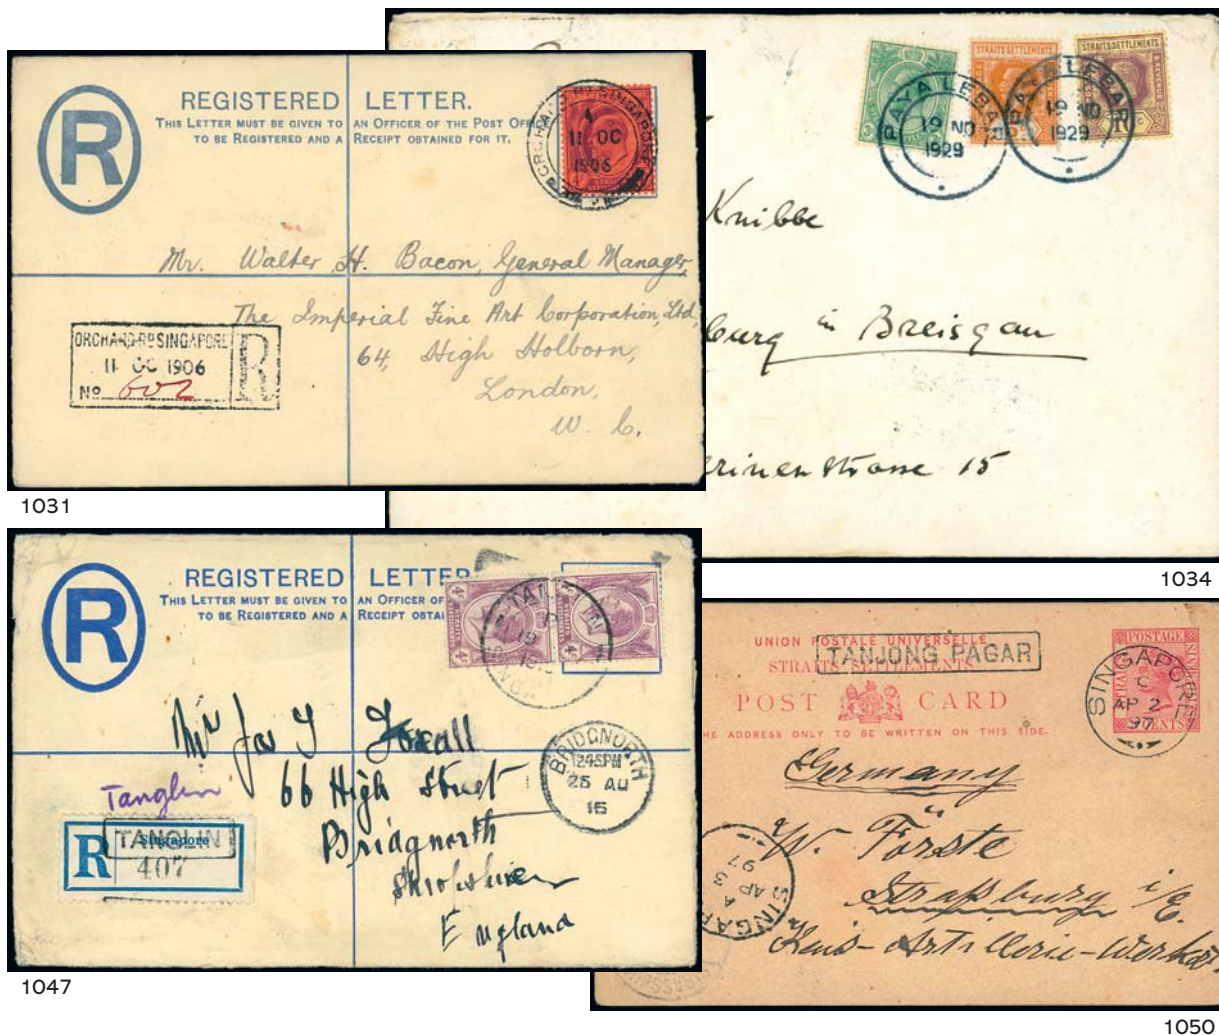 REGISTERED LETTER.
THIS LETTER MUST BE GIVEN TO AN OFFICER OF THE POST OFFICE
TO BE REGISTERED AND A RECEIPT OBTAINED FOR IT.
R
ORCHARD RD SINGAPORE
11 OC
1906
Mr. Walter H. Bacon, General Manager,
The Imperial Fine Art Corporation, Ltd,
64, High Holborn,
London,
W. C.
ORCHARD-RD SINGAPORE
11 OC 1906
No 602
R
1031
STRAITS SETTLEMENTS
STRAITS SETTLEMENTS
PAYA LEBAR
19 NO
1929
PAYA LEBAR
19 NO
1929
Knibbe
burg in Breisgau
15
1034
REGISTERED LETTER
THIS LETTER MUST BE GIVEN TO AN OFFICER OF
TO BE REGISTERED AND A RECEIPT OBTAI
R
Mr Jas T Foxall
66 High Street
Bridgnorth
Shropshire
England
BRIDGNORTH
1245PM
25 AU
15
Tanglin
R
Singapore
TANGLIN
407
1047
UNION POSTALE UNIVERSELLE
TANJONG PAGAR
STRAITS SETTLEMENTS
POST CARD
THE ADDRESS ONLY TO BE WRITTEN ON THIS SIDE.
POSTAGE
SINGAPORE
C
AP 2
97
CENTS
Germany
W. Förste
Straßburg i/E.
SINGAP
A
AP 3
97
1050